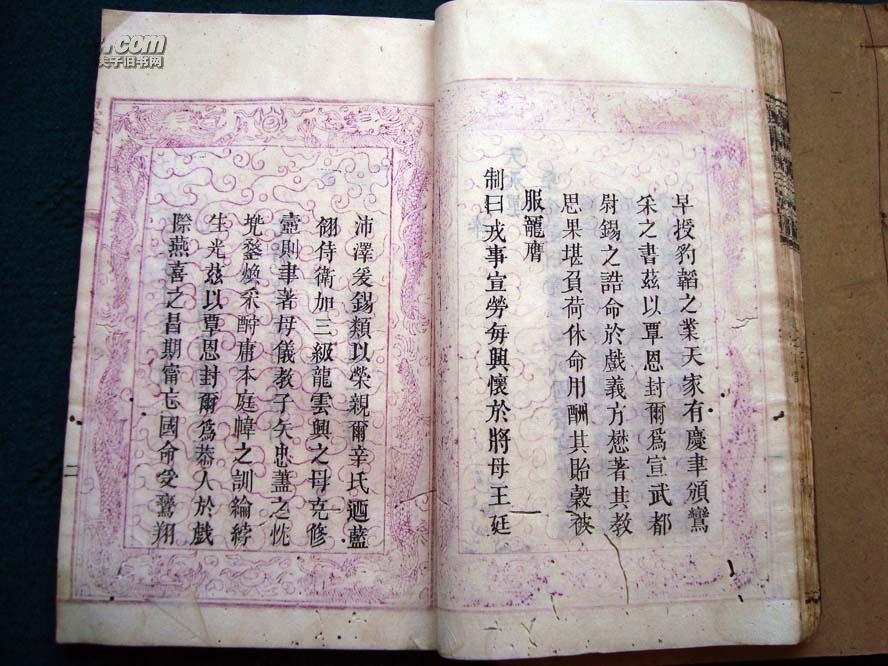 早授豹韜之業天家有慶聿頒鸞
采之書茲以覃恩封爾爲宣武都
尉錫之誥命於戲義方懋著其教
思果堪負荷休命用酬其貽榖被
服寵膺
制曰戎事宣勞每興懷於將母王廷
沛澤爰錫類以榮親爾辛氏迺藍
翎侍衛加三級龍雲興之母克修
壼則聿著母儀教子矢忠藎之忱
兜鍪煥采酧庸本庭幃之訓綸綍
生光茲以覃恩封爾爲恭人於戲
際燕喜之昌期甯忘國命受鸞翔
二
.com
夫子旧书网